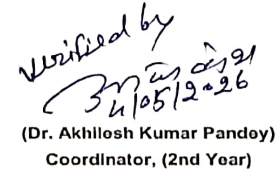 verified by
4/05/2026
(Dr. Akhilosh Kumar Pandoy)
Coordinator, (2nd Year)